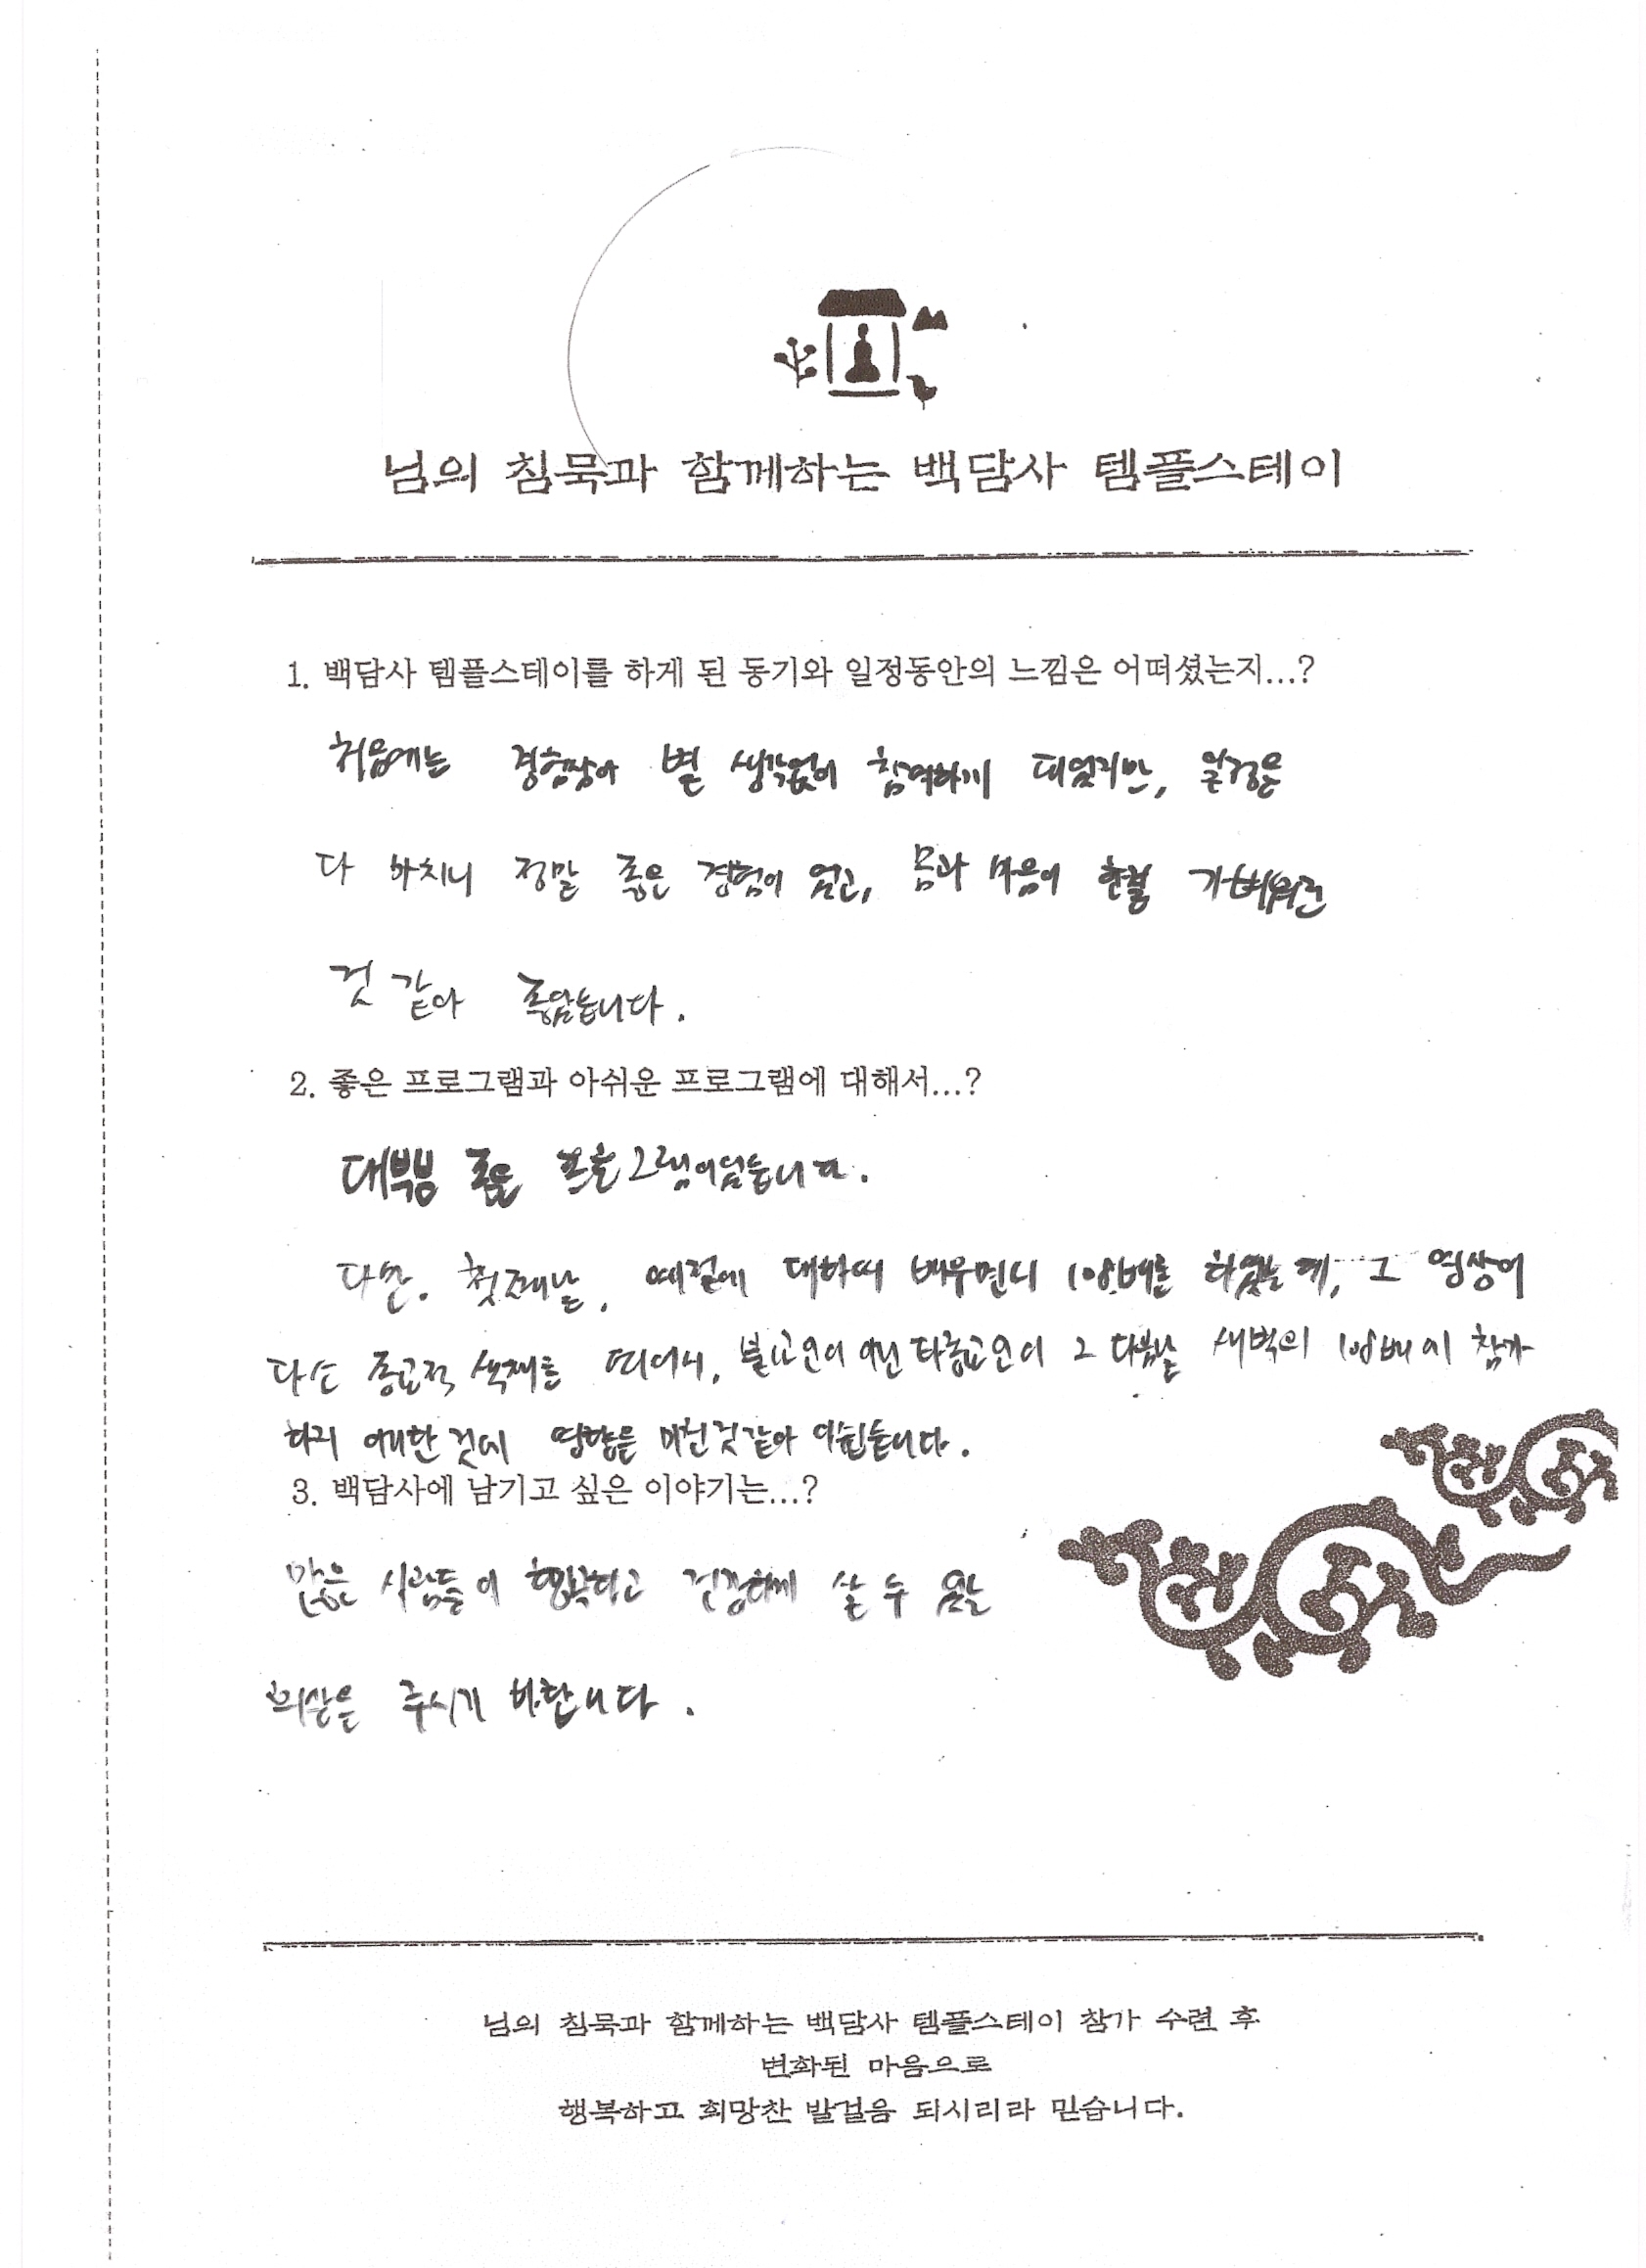 님의 침묵과 함께하는 백담사 템플스테이
1. 백담사 템플스테이를 하게 된 동기와 일정동안의 느낌은 어떠셨는지...?
처음에는 경험삼아 별 생각없이 참여하게 되었지만, 일정을
다 마치니 정말 좋은 경험이 었고, 몸과 마음이 한결 가벼워진
것 같아 좋았습니다.
2. 좋은 프로그램과 아쉬운 프로그램에 대해서...?
대부분 좋은 프로그램이었습니다.
다만. 첫째날, 예절에 대하여 배우면서 108배를 하였는데, 그 영상이
다소 종교적 색채를 띠어서, 불교인이 아닌 타종교인이 그 다음날 새벽의 108배에 참가
하지 아니한 것에 영향을 미친것같아 아쉽습니다.
3. 백담사에 남기고 싶은 이야기는...?
많은 사람들이 행복하고 건강하게 살 수 있는
주시기 바랍니다.
님의 침묵과 함께하는 백담사 템플스테이 참가 수련 후
변화된 마음으로
행복하고 희망찬 발걸음 되시리라 믿습니다.